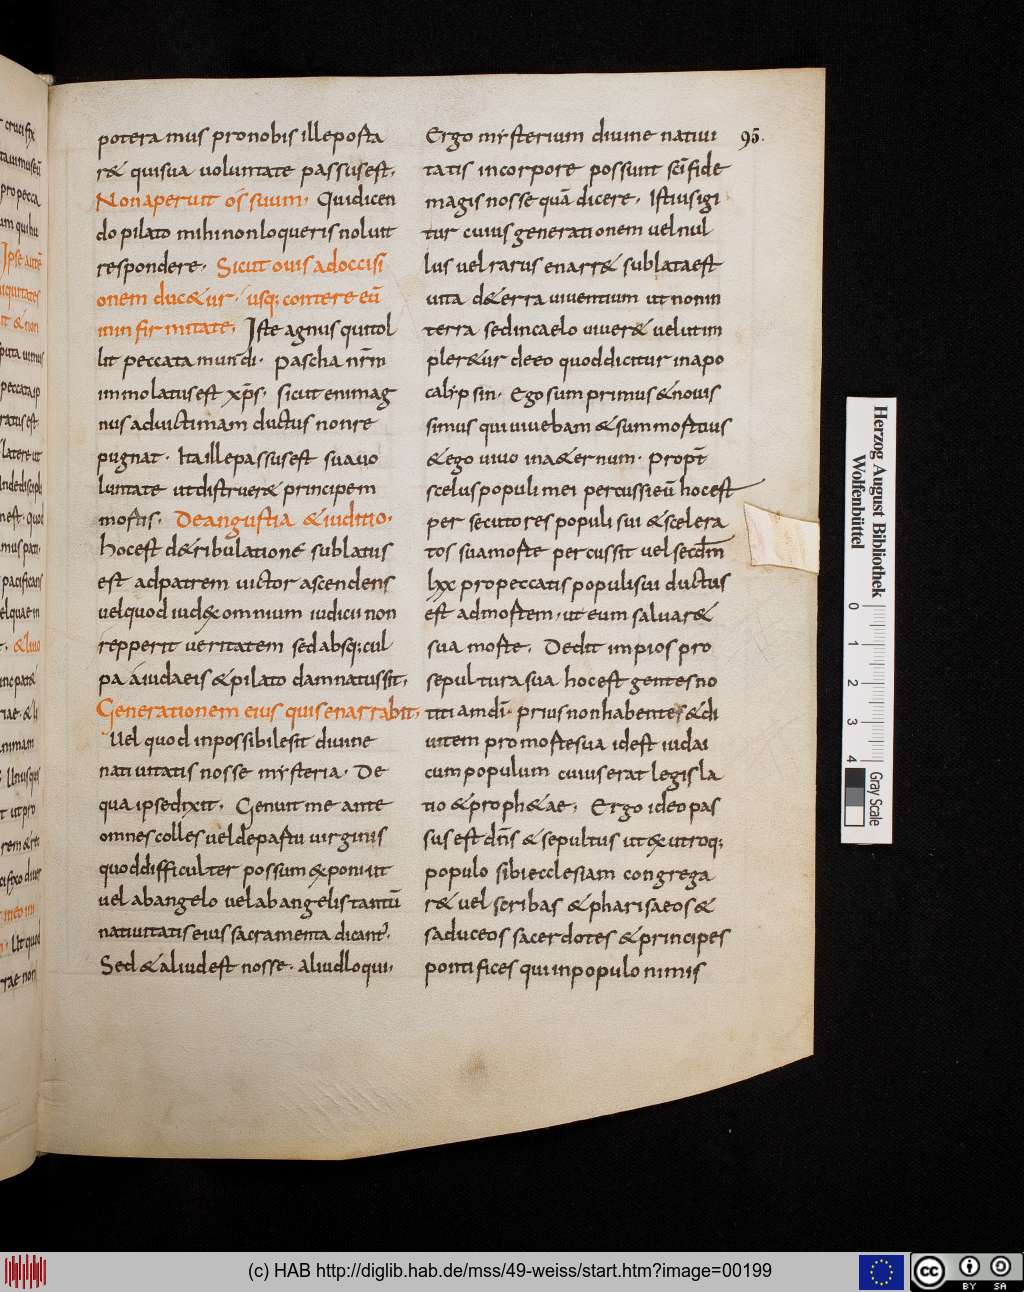 potera mus pro nobis ille posta
r& quisua uoluntate passus est.
Non aperuit os suum. Qui dicen
do pilato mihi non loqueris noluit
respondere. Sicut ouis ad occisi
onem duc&ur. usq; contereeū
in infirmitate. Iste agnus qui tol
lit peccata mundi. Pascha nr̄m
immolatus est xp̄s. sicut enim ag
nus ad uictimam ductus non re
pugnat. Ita ille passus est sua uo
luntate ut distruer& principem
mortis. De angustia & iuditio.
hoc est d& ribulatione sublatus
est ad patrem uictor ascendens
uel quod iud&x omnium iudicii non
repperit ueritatem sed absq; cul
pa a iudaeis & pilato damnatus sit.
Generationem eius quis enarrabit.
Uel quod inpossibile sit diuine
natiuitatis nosse mysteria. De
qua ipse dixit. Genuit me ante
omnes colles uel de partu uirginis
quod difficulter possum &xponi ut
uel ab angelo uel ab angelis tantū
natiuitatis eius sacramenta dicant͛.
Sed & aliud est nosse. aliud loqui.
Ergo mysterium diuine natiui
tatis incorpore possunt sc̄i fide
magis nosse quā dicere. Istius igi
tur cuius generationem uel nul
lus uel rarus enarr& sublata est
uita d& erra uiuentium ut non in
terra sed in caelo uiuer& uel ut im
pler&ur de eo quod dicitur in apo
calypsin. Ego sum primus & nouis
simus qui uiuebam & sum mortuus
& ego uiuo in a&ernum. Propt̄
scelus populi mei percussi eū hoc est
per secutores populi sui & scelera
tos sua morte percussit uel secdm̄
lxx pro peccatis populi sui ductus
est ad mortem. ut eum saluar&
sua morte. Dedit impios pro
sepultura sua hoc est gentes no
titiam di. prius non habentes & di
uitem pro morte sua id est iudai
cum populum cuius erat legis la
tio & proph&ae. Ergo ideo pas
sus est dn̄s & sepultus ut &x utroq;
populo sibi ecclesiam congrega
r& uel scribas & pharisaeos &
saduceos sacerdotes & principes
pontifices qui in populo nimis
95.
Herzog August Bibliothek
Wolfenbüttel
0 1 2 3 4
Gray Scale
(c) HAB http://diglib.hab.de/mss/49-weiss/start.htm?image=00199
cc BY SA